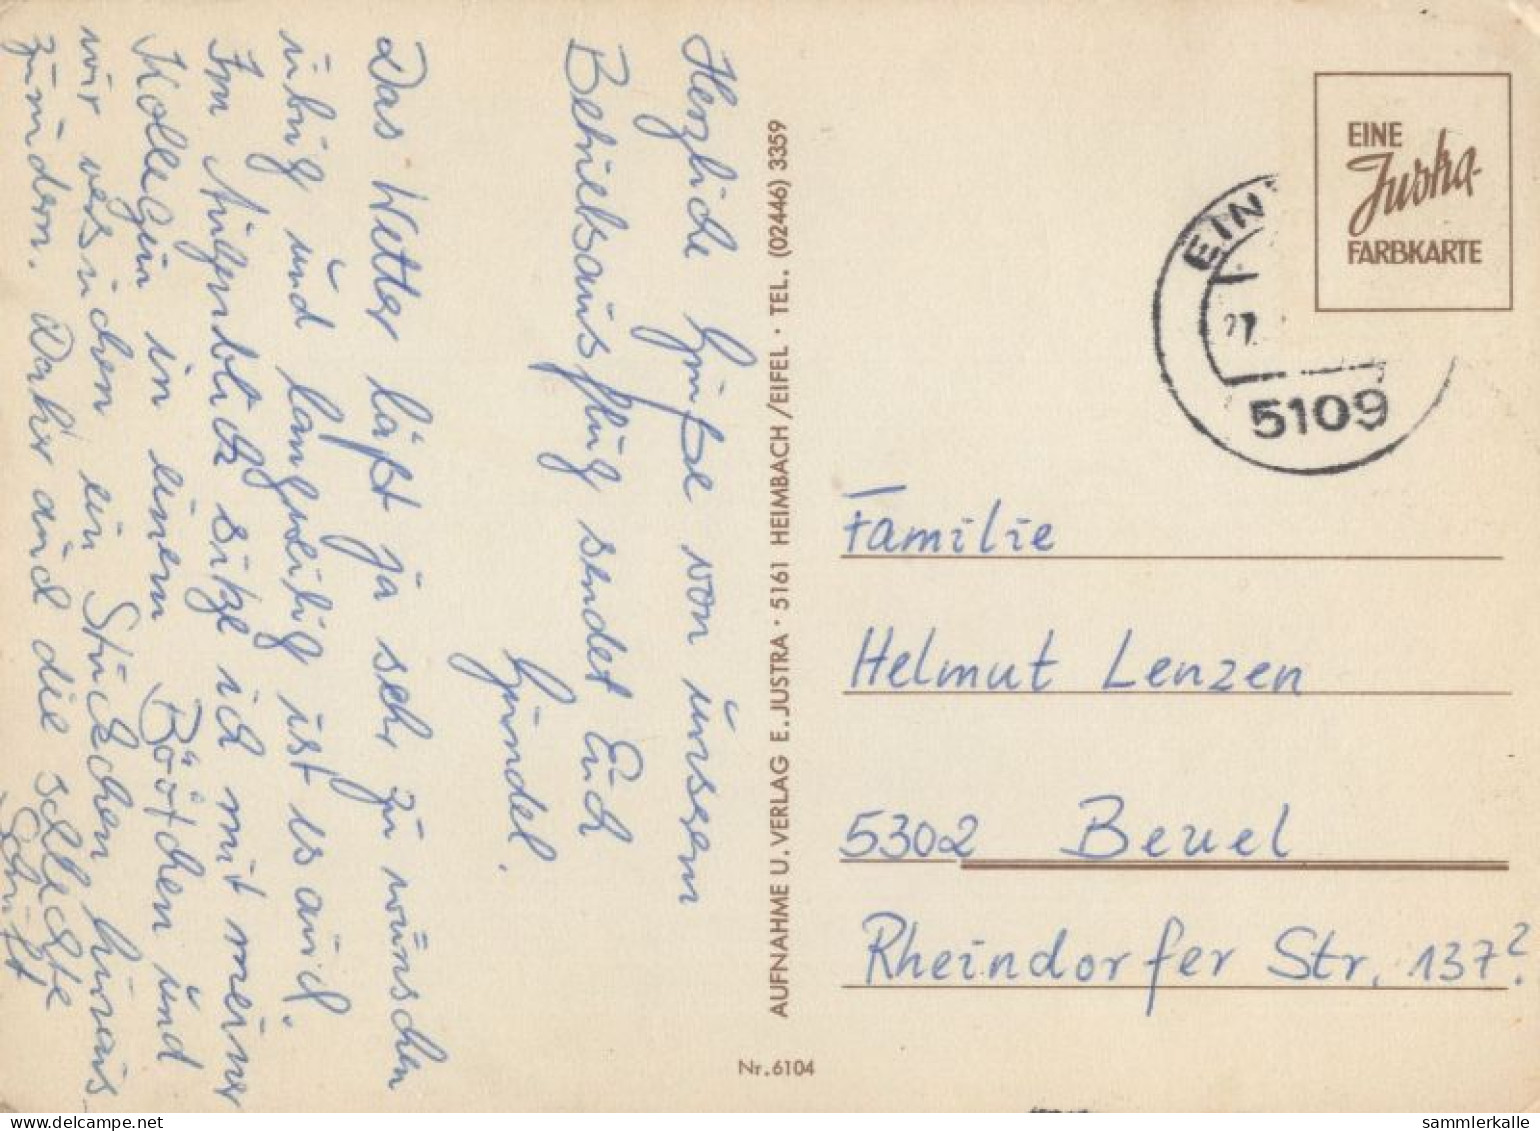 Herzliche Grüße von unserm
Betriebsausflug sendet Euch
Gündel.
Das Wetter läßt ja sehr zu wünschen
übrig und langweilig ist es auch.
Im Augenblick sitze ich mit meiner
Kollegin in einem Böötchen und
wir versuchen ein Stückchen hinaus
zurudern. Daher auch die schlechte
Schrift
AUFNAHME U. VERLAG E. JUSTRA · 5161 HEIMBACH/EIFEL · TEL. (02446) 3359
Nr. 6104
EINE
Justra-
FARBKARTE
5109
Familie
Helmut Lenzen
5302 Beuel
Rheindorfer Str. 137?
delcampe.net
sammlerkalle